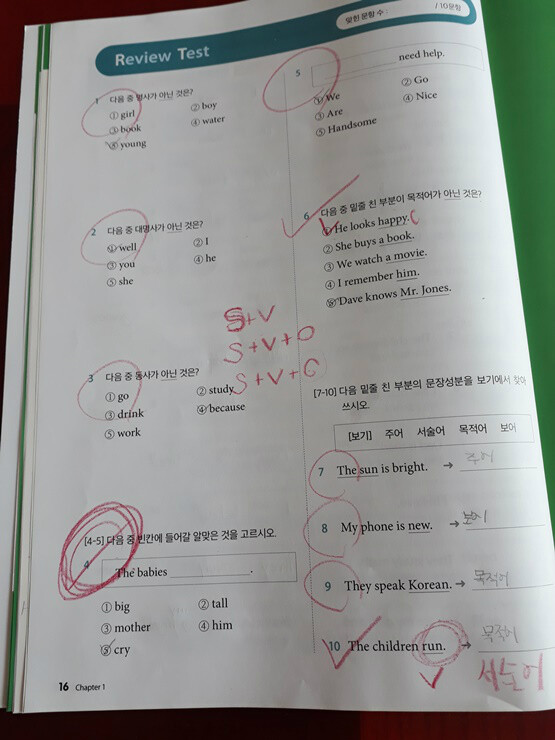 Review Test
맞힌 문항 수 : /10문항
1 다음 중 명사가 아닌 것은?
① girl ② boy
③ book ④ water
⑤ young
2 다음 중 대명사가 아닌 것은?
① well ② I
③ you ④ he
⑤ she
S+V
S+V+O
S+V+C
3 다음 중 동사가 아닌 것은?
① go ② study
③ drink ④ because
⑤ work
[4-5] 다음 중 빈칸에 들어갈 알맞은 것을 고르시오.
4 The babies ____________.
① big ② tall
③ mother ④ him
⑤ cry
5 ____________ need help.
① We ② Go
③ Are ④ Nice
⑤ Handsome
6 다음 중 밑줄 친 부분이 목적어가 아닌 것은?
① He looks happy. C
② She buys a book.
③ We watch a movie.
④ I remember him.
⑤ Dave knows Mr. Jones.
[7-10] 다음 밑줄 친 부분의 문장성분을 보기에서 찾아
쓰시오.
[보기] 주어 서술어 목적어 보어
7 The sun is bright. → 주어
8 My phone is new. → 보어
9 They speak Korean. → 목적어
10 The children run. → 목적어
서술어
16 Chapter 1